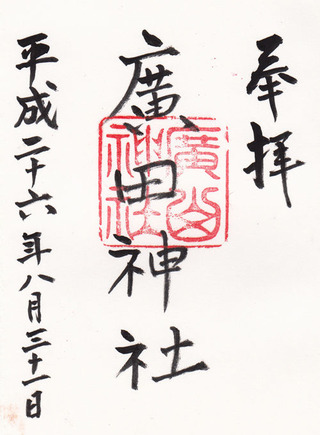 奉拝
廣田神社
廣田神社
平成二十六年八月三十一日